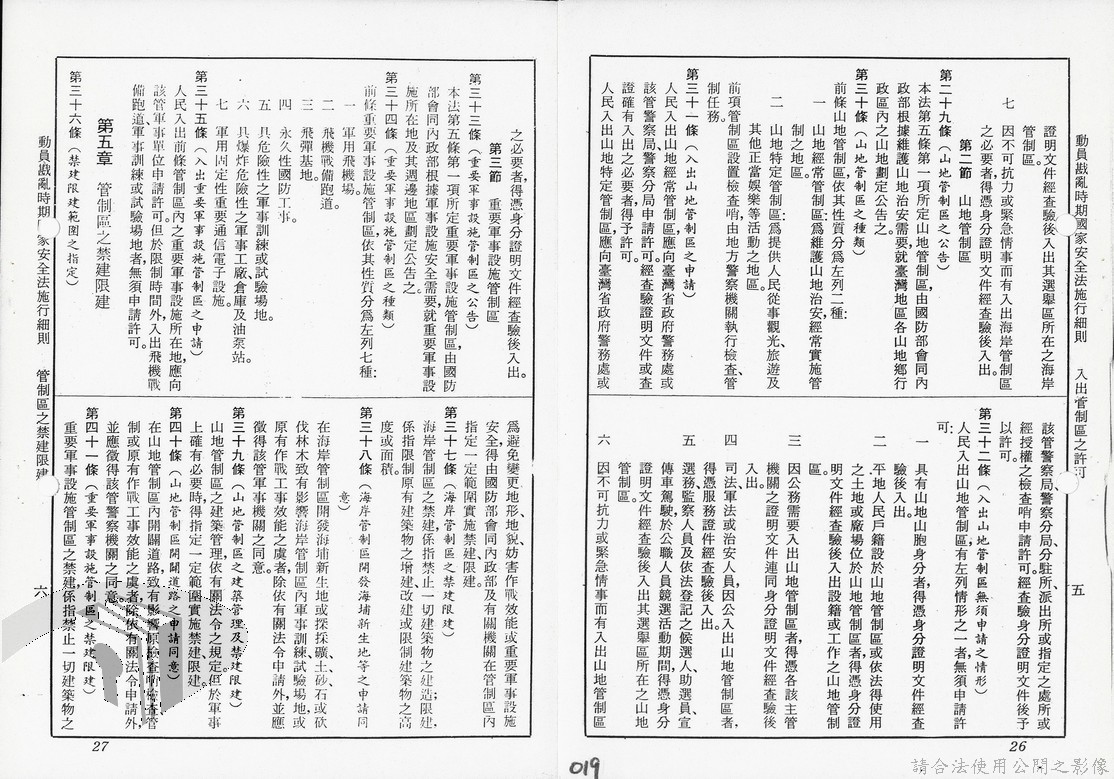 動員戡亂時期國家安全法施行細則　入出管制區之許可
五
證明文件經查驗後入出其選舉區所在之海岸
管制區。
七　因不可抗力或緊急情事而有入出海岸管制區
之必要者，得憑身分證明文件經查驗後入出。
第二節　山地管制區
第二十九條（山地管制區之公告）
本法第五條第一項所定山地管制區，由國防部會同內
政部根據維護山地治安需要就臺灣地區各山地鄉行
政區內之山地劃定公告之。
第三十條（山地管制區之種類）
前條山地管制區，依其性質分爲左列二種：
一　山地經常管制區：爲維護山地治安，經常實施管
制之地區。
二　山地特定管制區：爲提供人民從事觀光、旅遊及
其他正當娛樂等活動之地區。
前項管制區設置檢查哨，由地方警察機關執行檢查、管
制任務。
第三十一條（入出山地管制區之申請）
人民入出山地經常管制區，應向臺灣省政府警務處或
該管警察局、警察分局申請許可。經查驗證明文件或查
證確有入出之必要者，得予許可。
人民入出山地特定管制區，應向臺灣省政府警務處或
該管警察局、警察分局、分駐所、派出所或指定之處所或
經授權之檢查哨申請許可。經查驗身分證明文件後予
以許可。
第三十二條（入出山地管制區無須申請之情形）
人民入出山地管制區，有左列情形之一者，無須申請許
可：
一　具有山地山胞身分者，得憑身分證明文件經查
驗後入出。
二　平地人民戶籍設於山地管制區或依法得使用
之土地或廠場位於山地管制區者，得憑身分證
明文件經查驗後入出設籍或工作之山地管制
區。
三　因公務需要入出山地管制區者，得憑各該主管
機關之證明文件連同身分證明文件經查驗後
入出。
四　司法、軍法或治安人員，因公入出山地管制區者，
得憑服務證件經查驗後入出。
五　選務、監察人員及依法登記之候選人、助選員、宣
傳車駕駛於公職人員競選活動期間，得憑身分
證明文件經查驗後入出其選舉區所在之山地
管制區。
六　因不可抗力或緊急情事而有入出山地管制區
26
之必要者，得憑身分證明文件經查驗後入出。
第三節　重要軍事設施管制區
第三十三條（重要軍事設施管制區之公告）
本法第五條第一項所定重要軍事設施管制區，由國防
部會同內政部根據軍事設施安全需要，就重要軍事設
施所在地及其週邊地區劃定公告之。
第三十四條（重要軍事設施管制區之種類）
前條重要軍事設施管制區，依其性質分爲左列七種：
一　軍用飛機場。
二　飛機戰備跑道。
三　飛彈基地。
四　永久性國防工事。
五　具危險性之軍事訓練或試驗場地。
六　具爆炸危險性之軍事工廠、倉庫及油泵站。
七　軍用固定性重要通信電子設施。
第三十五條（入出重要軍事設施管制區之申請）
人民入出前條管制區內之重要軍事設施所在地，應向
該管軍事單位申請許可。但於限制時間外，入出飛機戰
備跑道、軍事訓練或試驗場地者，無須申請許可。
第五章　管制區之禁建限建
第三十六條（禁建限建範圍之指定）
爲避免變更地形、地貌，妨害作戰效能或重要軍事設施
安全，得由國防部會同內政部及有關機關在管制區內
指定一定範圍，實施禁建、限建。
第三十七條（海岸管制區之禁建限建）
海岸管制區之禁建，係指禁止一切建築物之建造；限建，
係指限制原有建築物之增建、改建或限制建築物之高
度或面積。
第三十八條（海岸管制區開發海埔新生地等之申請同
意）
在海岸管制區開發海埔新生地或探採礦土、砂石或砍
伐林木，致有影響海岸管制區內軍事訓練、試驗場地或
原有作戰工事效能之虞者，除依有關法令申請外，並應
徵得該管軍事機關之同意。
第三十九條（山地管制區之建築管理及禁建限建）
山地管制區之建築管理，依有關法令之規定。但於軍事
上確有必要時，得指定一定範圍，實施禁建、限建。
第四十條（山地管制區開闢道路之申請同意）
在山地管制區內開闢道路，致有影響原檢查哨檢查管
制或原有作戰工事效能之虞者，除依有關法令申請外，
並應徵得該管警察機關之同意。
第四十一條（重要軍事設施管制區之禁建限建）
重要軍事設施管制區之禁建，係指禁止一切建築物之
動員戡亂時期　家安全法施行細則　管制區之禁建限
六
27
019
請合法使用公開之影像